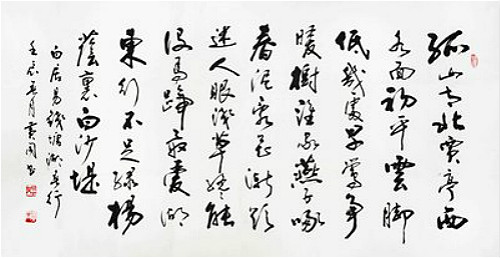 孤山寺北賈亭西
水面初平雲脚
低幾處早鶯争
暖樹誰家燕子啄
春泥亂花漸欲
迷人眼淺草纔能
没馬蹄最愛湖
東行不足緑楊
蔭裏白沙堤
白居易錢塘湖春行
壬辰